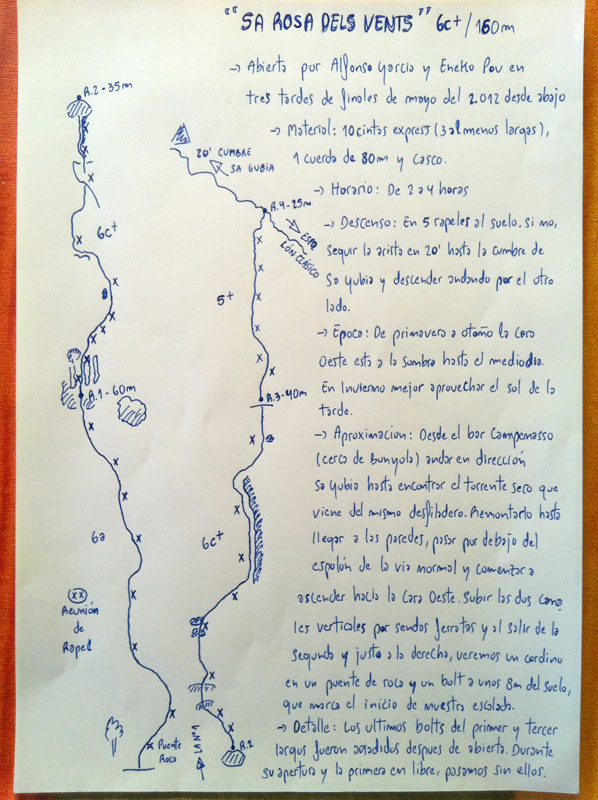 "SA ROSA DELS VENTS" 6c+/160m
→ Abierta por Alfonso Garcia y Eneko Pou en
tres tardes de finales de mayo del 2012 desde abajo
→ Material: 10 cintas express (3 al menos largas),
1 cuerda de 80m y casco.
→ Horario: De 2 a 4 horas
→ Descenso: En 5 rapeles al suelo. Si no,
seguir la arista en 20' hasta la cumbre de
Sa Gubia y descender andando por el otro
lado.
→ Epoca: De primavera a otoño la cara
Oeste esta a la sombra hasta el mediodia.
En Invierno mejor aprovechar el sol de la
tarde.
→ Aproximacion: Desde el bar Campemasso
(cerca de Bunyola) andar en dirección
Sa Gubia hasta encontrar el torrente seco que
viene del mismo desfiladero. Remontarlo hasta
llegar a las paredes, pasar por debajo del
espolón de la via normal y comenzar a
ascender hacia la Cara Oeste. Subir las dos cana
les verticales por sendas ferratas y al salir de la
segunda y justo a la derecha, veremos un cordino
en un puente de roca y un bolt a unos 8m del suelo,
que marca el inicio de nuestra escalada.
→ Detalle: Los ultimos bolts del primer y tercer
largos fueron añadidos despues de abierta. Durante
su apertura y la primera en libre, pasamos sin ellos.
R.2-35m
6c+
R.1-60m
6a
xx
Reunión
de
Rapel
Puente
Roca
20' CUMBRE
SA GUBIA
R.4-25m
ESPO
LÓN CLÁSICO
5+
R.3-40m
6c+
R.2